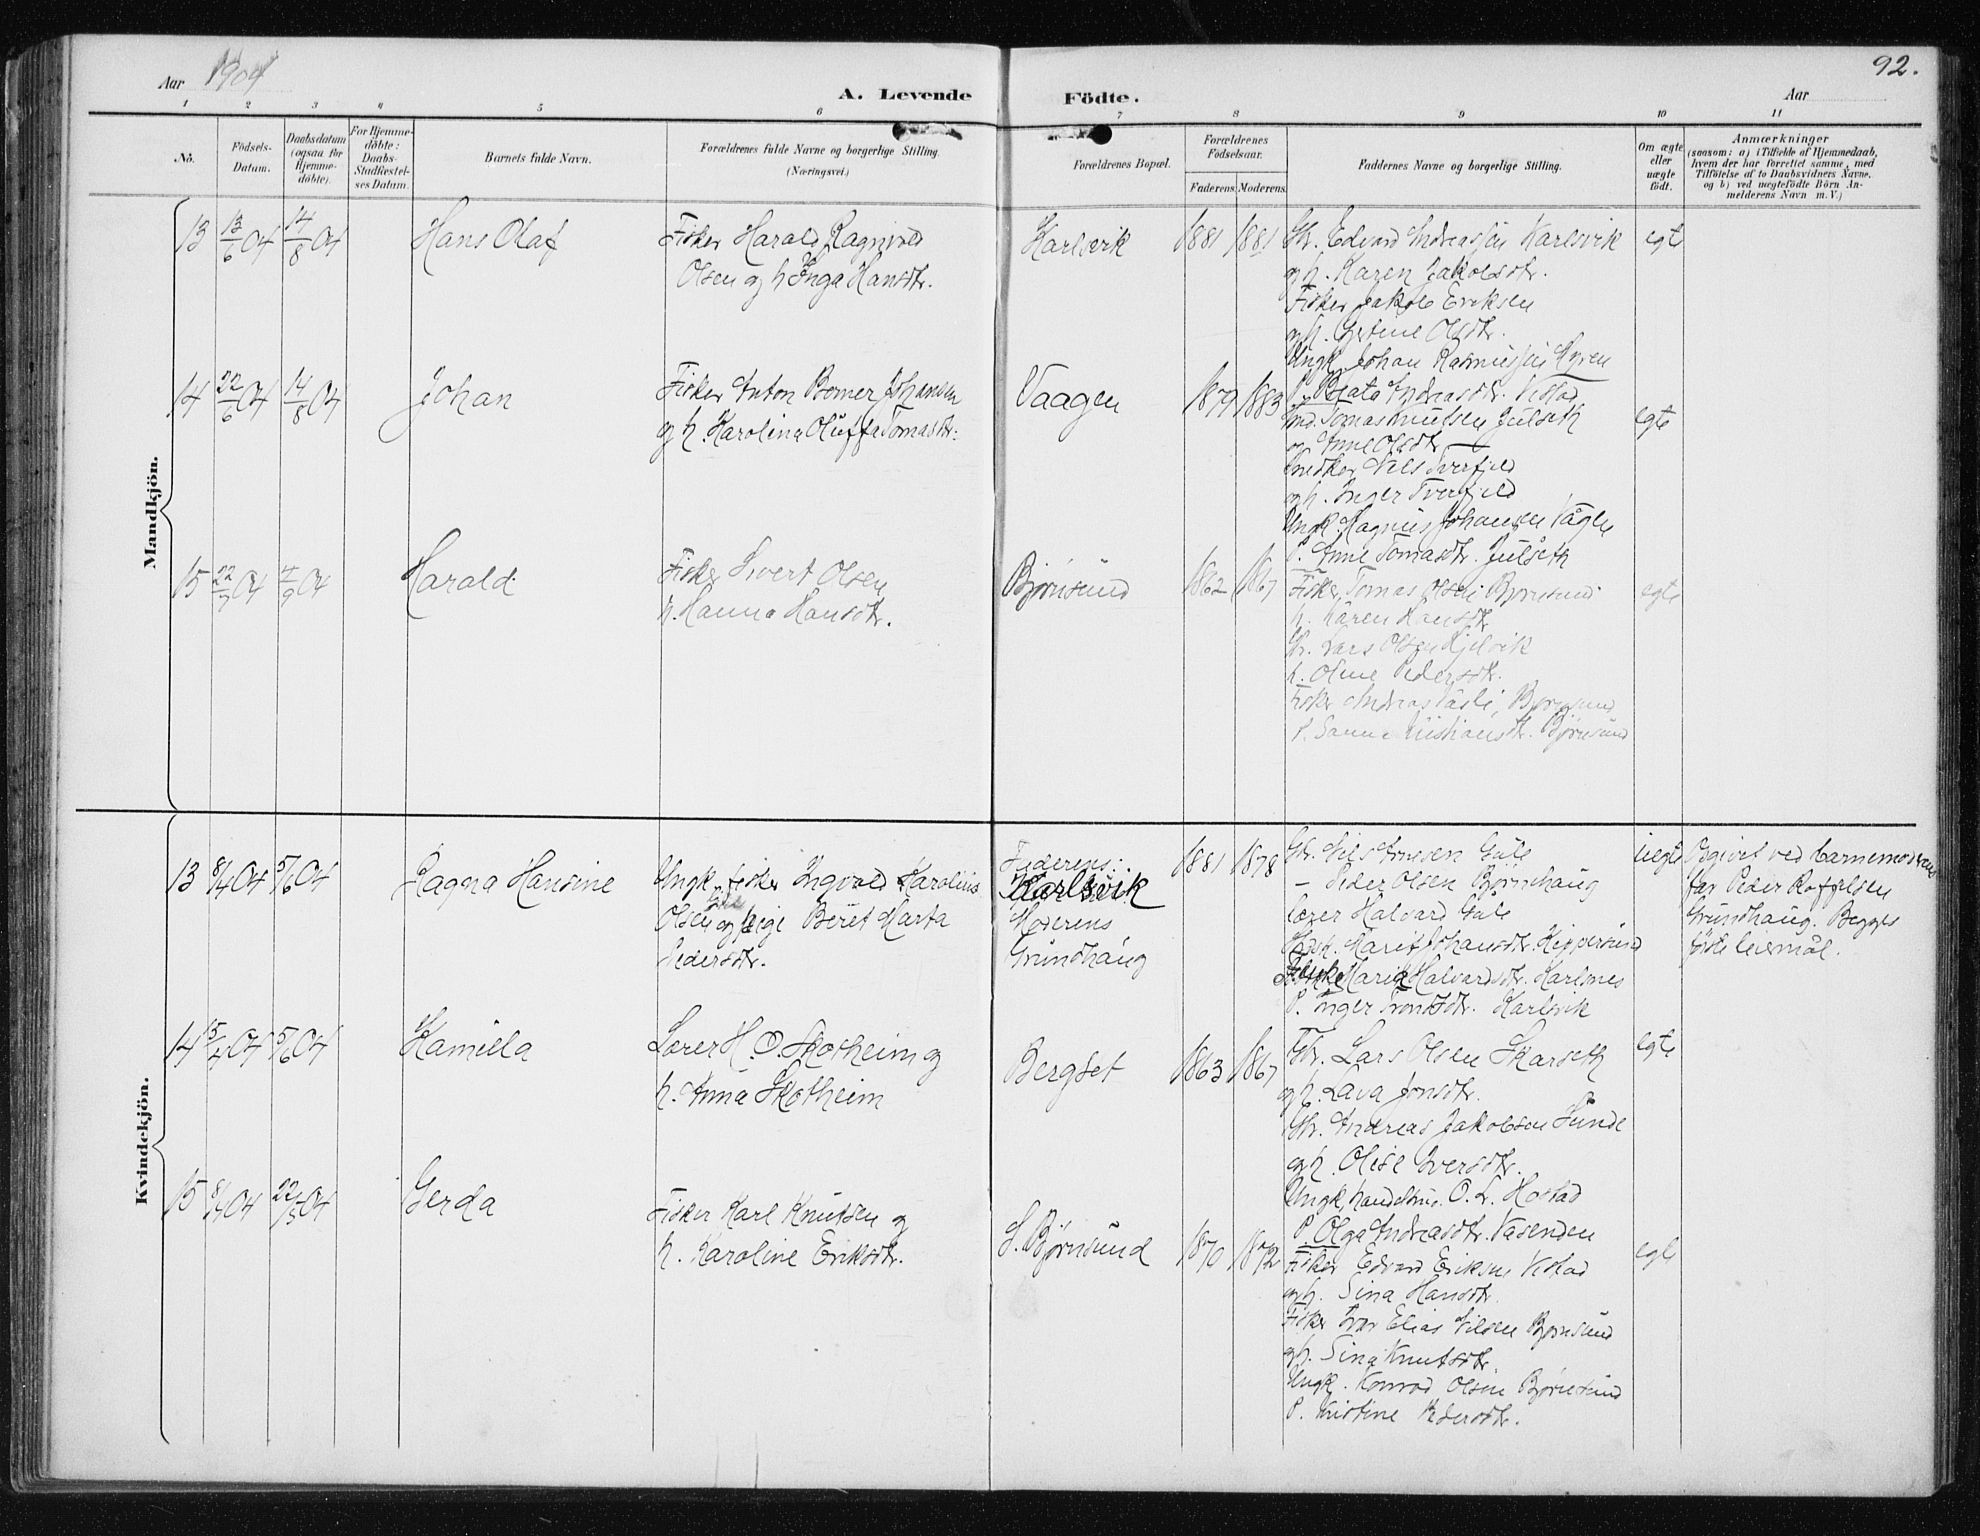 92.
Aar 1904
A. Levende Födte.
Aar
1 2 3 4 5 6 7 8 9 10 11
No.
Födsels-Datum.
Daabsdatum (ogsaa for Hjemme-döbte).
For Hjemme-döbte: Daabs-Stadfæstel-ses Datum.
Barnets fulde Navn.
Forældrenes fulde Navne og borgerlige Stilling.
(Næringsvei.)
Forældrenes Bopæl.
Forældrenes Födselsaar.
Faderens. Moderens.
Faddernes Navne og borgerlige Stilling.
Om ægte eller uægte födt.
Anmærkninger
(saasom: a) i Tilfælde af Hjemmedaab,
hvem der har forrettet samme, med
Tilföielse af to Daabsvidners Navne.
og b) ved uægtefödte Börn An-
melderens Navn m. V.)
Mandkjön.
13 13/6 04 14/8 04 Hans Olaf
Fisker Harald Ragnvald
Olsen og h. Inga Hansdtr.
Karlsvik 1881 1881
Gbr. Edvard Andreassen Karlsvik
og h. Karen Jakobsdtr.
Fisker Jakob Eriksen
og h. Gjertine Olsdtr.
Ungk. Johan Rasmussen Myren
P. Beata Andreasdtr. Vestad
egte
14 22/6 04 14/8 04 Johan
Fisker Anton Bomer Johansen
og h. Karolina Oluffa Tomasdtr.
Vaagen 1879 1883
Tomas Knutsen Julseth
og Anne Olsdtr. —
Snedker Nils Tverfjeld
og h. Inger Tverfjeld
Ungk. Magnus Johansen Vågen
P. Anne Tomasdtr. Julseth
egte
15 22/7 04 4/9 04 Harald
Fisker Sivert Olsen
h. Hanna Hansdtr.
Bjørnsund 1862 1867
Fisker Tomas Olsen Bjørnsund
h. Karen Hansdtr
Gbr. Lars Olsen
h. Oline Pedersdtr.
Fisker Andreas Bjørnsund
P. Bjørnsund
egte
Kvindekjön.
13 8/4 04 5/6 04 Ragna Hansine
Ungk. fisker Ingvald Karolius
Olsen og pige Beret Marta
Pedersdtr.
Faderens:
Karlsvik
Moderens
Grundhaug
1881 1878
Gbr. Nils Arnesen Gule
— Peder Olsen Bjørnehaug
Lærer Halvard Gule
Marit Johansdtr.
Marie Halvardsdtr. Karlsnes
P. Inger Karlsvik
uegte
Opgivet ved barnemoderens
far Peder Rafaelsen
Grundhaug. Begges
første leiermål.
14 15/4 04 5/6 04 Kamilla
Lærer H. O. Skotheim og
h. Anna Skotheim
Bergset 1863 1867
Gbr. Lars Olsen Skarseth
og h. Lava Jonsdtr.
Gbr. Andreas Jakobsen Sunde
og h. Olise Iversdtr.
Ungk, handelsm. O. L. Hostad
P. Olga Andreasdtr. Nasenden
egte
15 8/4 04 22/5 04 Gerda
Fisker Karl Knutsen og
h. Karoline Eriksdtr.
S. Bjørnsund 1870 1872
Fisker Edvard Eriksen Vestad
og h. Sina Hansdtr.
Fisker Ivar Elias Nilsen Bjørnsund
og h. Sina Knutsdtr.
Ungk. Konrad Olsen Bjørnsund
P. Kristine Pedersdtr.
egte